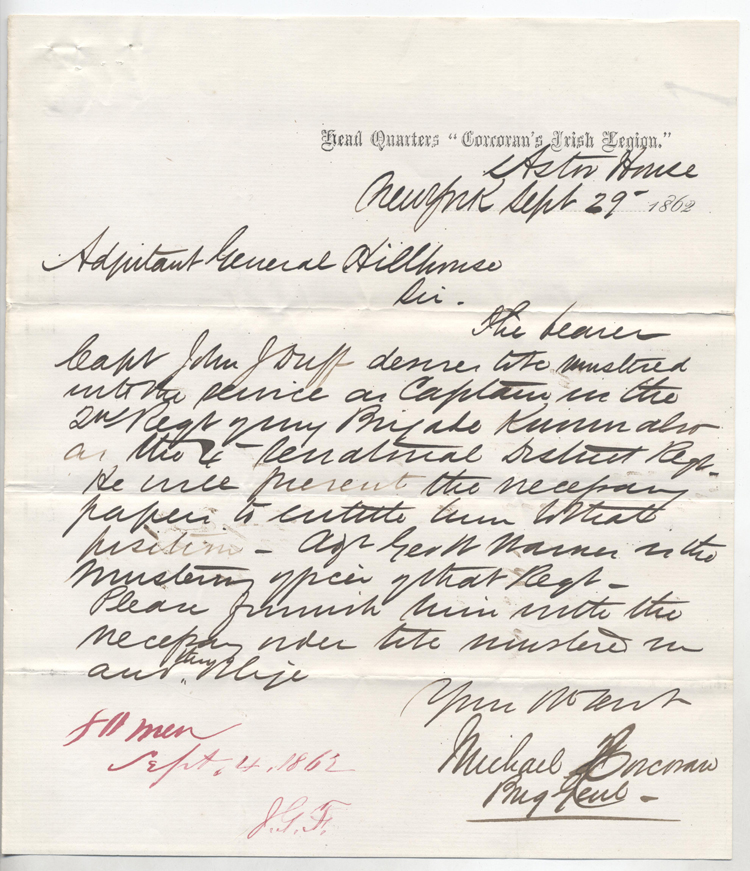 Head Quarters "Corcoran's Irish Legion."
Astor House
New York Sept 29 1862
Adjutant General Hillhouse
Sir.
The bearer
Capt John J Duff desires to be mustered
into the service as Captain in the
2nd Regt of my Brigade Known also
as the 4 Senatorial District Regt.
He will present the necessary
papers to entitle him to that
position - Warner is the
Mustering officer of that Regt -
Please furnish him with the
necessary order to be mustered in
and thus oblige
Your Obt Svt
Michael Corcoran
Brig Genl -
men
Sept. 4. 1862
J.G.F.